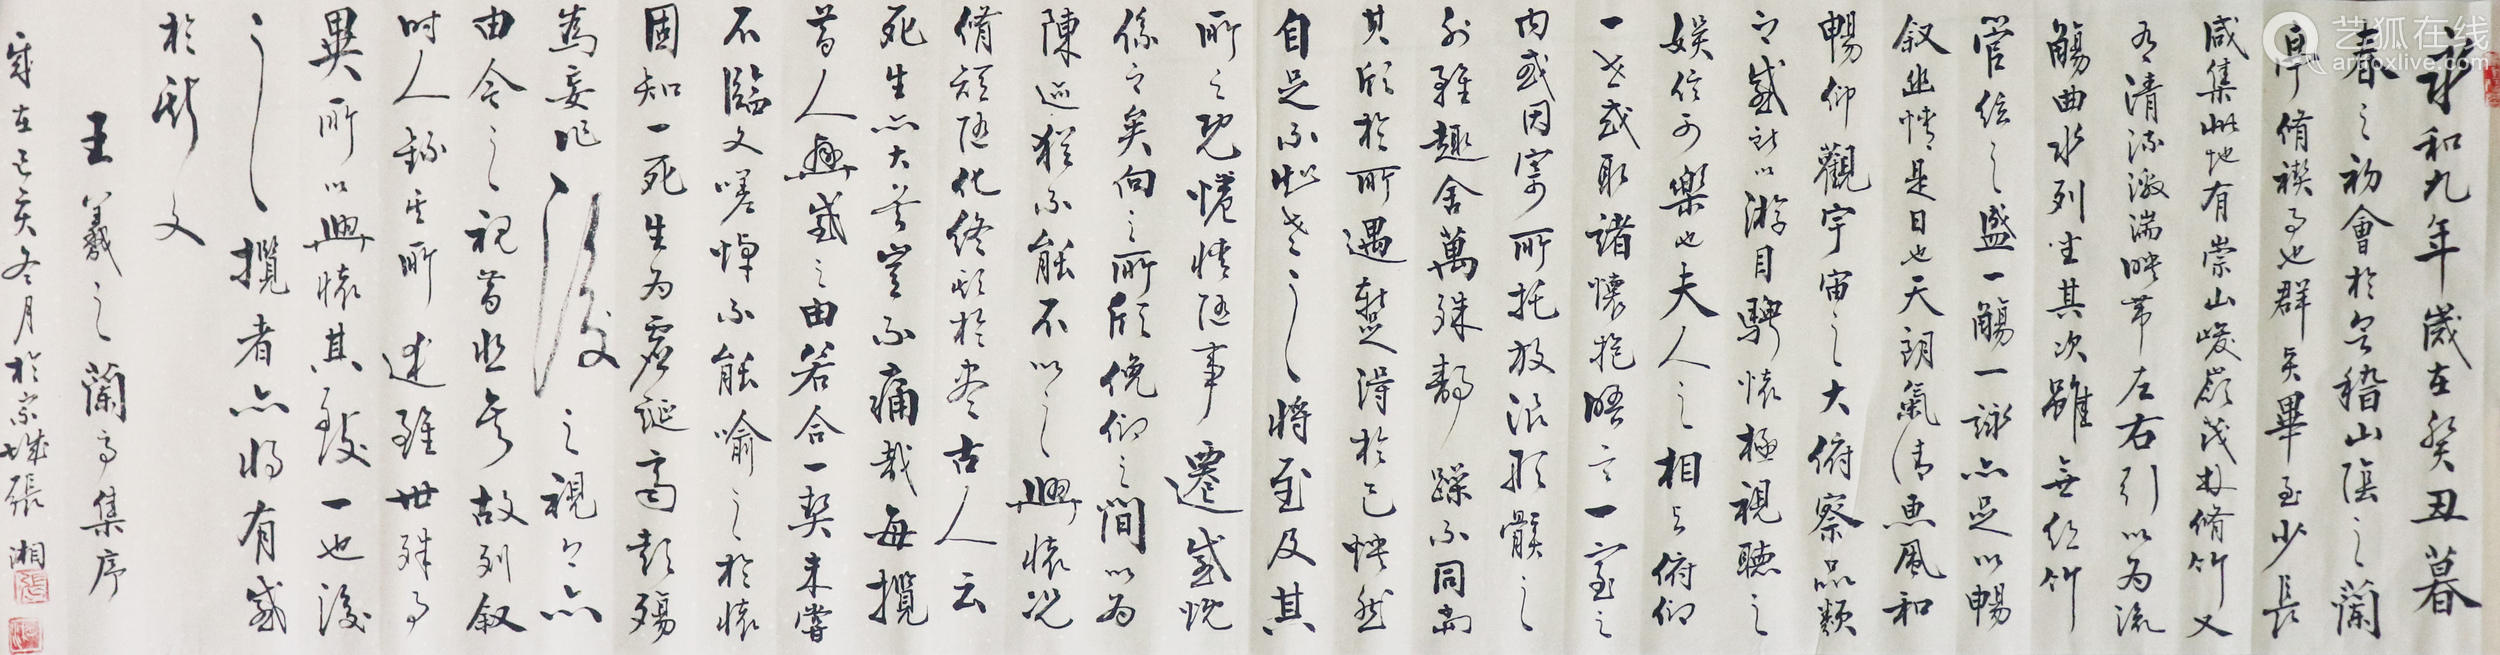 永和九年歲在癸丑暮
春之初會於會稽山陰之蘭
亭脩禊事也群賢畢至少長
咸集此地有崇山峻嶺茂林脩竹又
有清流激湍映帶左右引以為流
觴曲水列坐其次雖無絲竹
管絃之盛一觴一詠亦足以暢
叙幽情是日也天朗氣清惠風和
暢仰觀宇宙之大俯察品類
之盛所以游目騁懷極視聽之
娛信可樂也夫人之相與俯仰
一世或取諸懷抱晤言一室之
内或因寄所托放浪形骸之
外雖趣舍萬殊靜躁不同當
其欣於所遇暫得於己怏然
自足不知老之將至及其
所之既惓情隨事遷感慨
係之矣向之所欣俛仰之間以為
陳迹猶不能不以之興懷況
脩短隨化終期於盡古人云
死生亦大矣豈不痛哉每攬
昔人興感之由若合一契未嘗
不臨文嗟悼不能喻之於懷
固知一死生為虛誕齊彭殤
為妄作後之視今亦
由今之視昔悲夫故列叙
時人錄其所述雖世殊事
異所以興懷其致一也後
之攬者亦將有感
於斯文
王羲之蘭亭集序
歲在己亥冬月於京城張湘
艺狐在线
artfoxlive.com